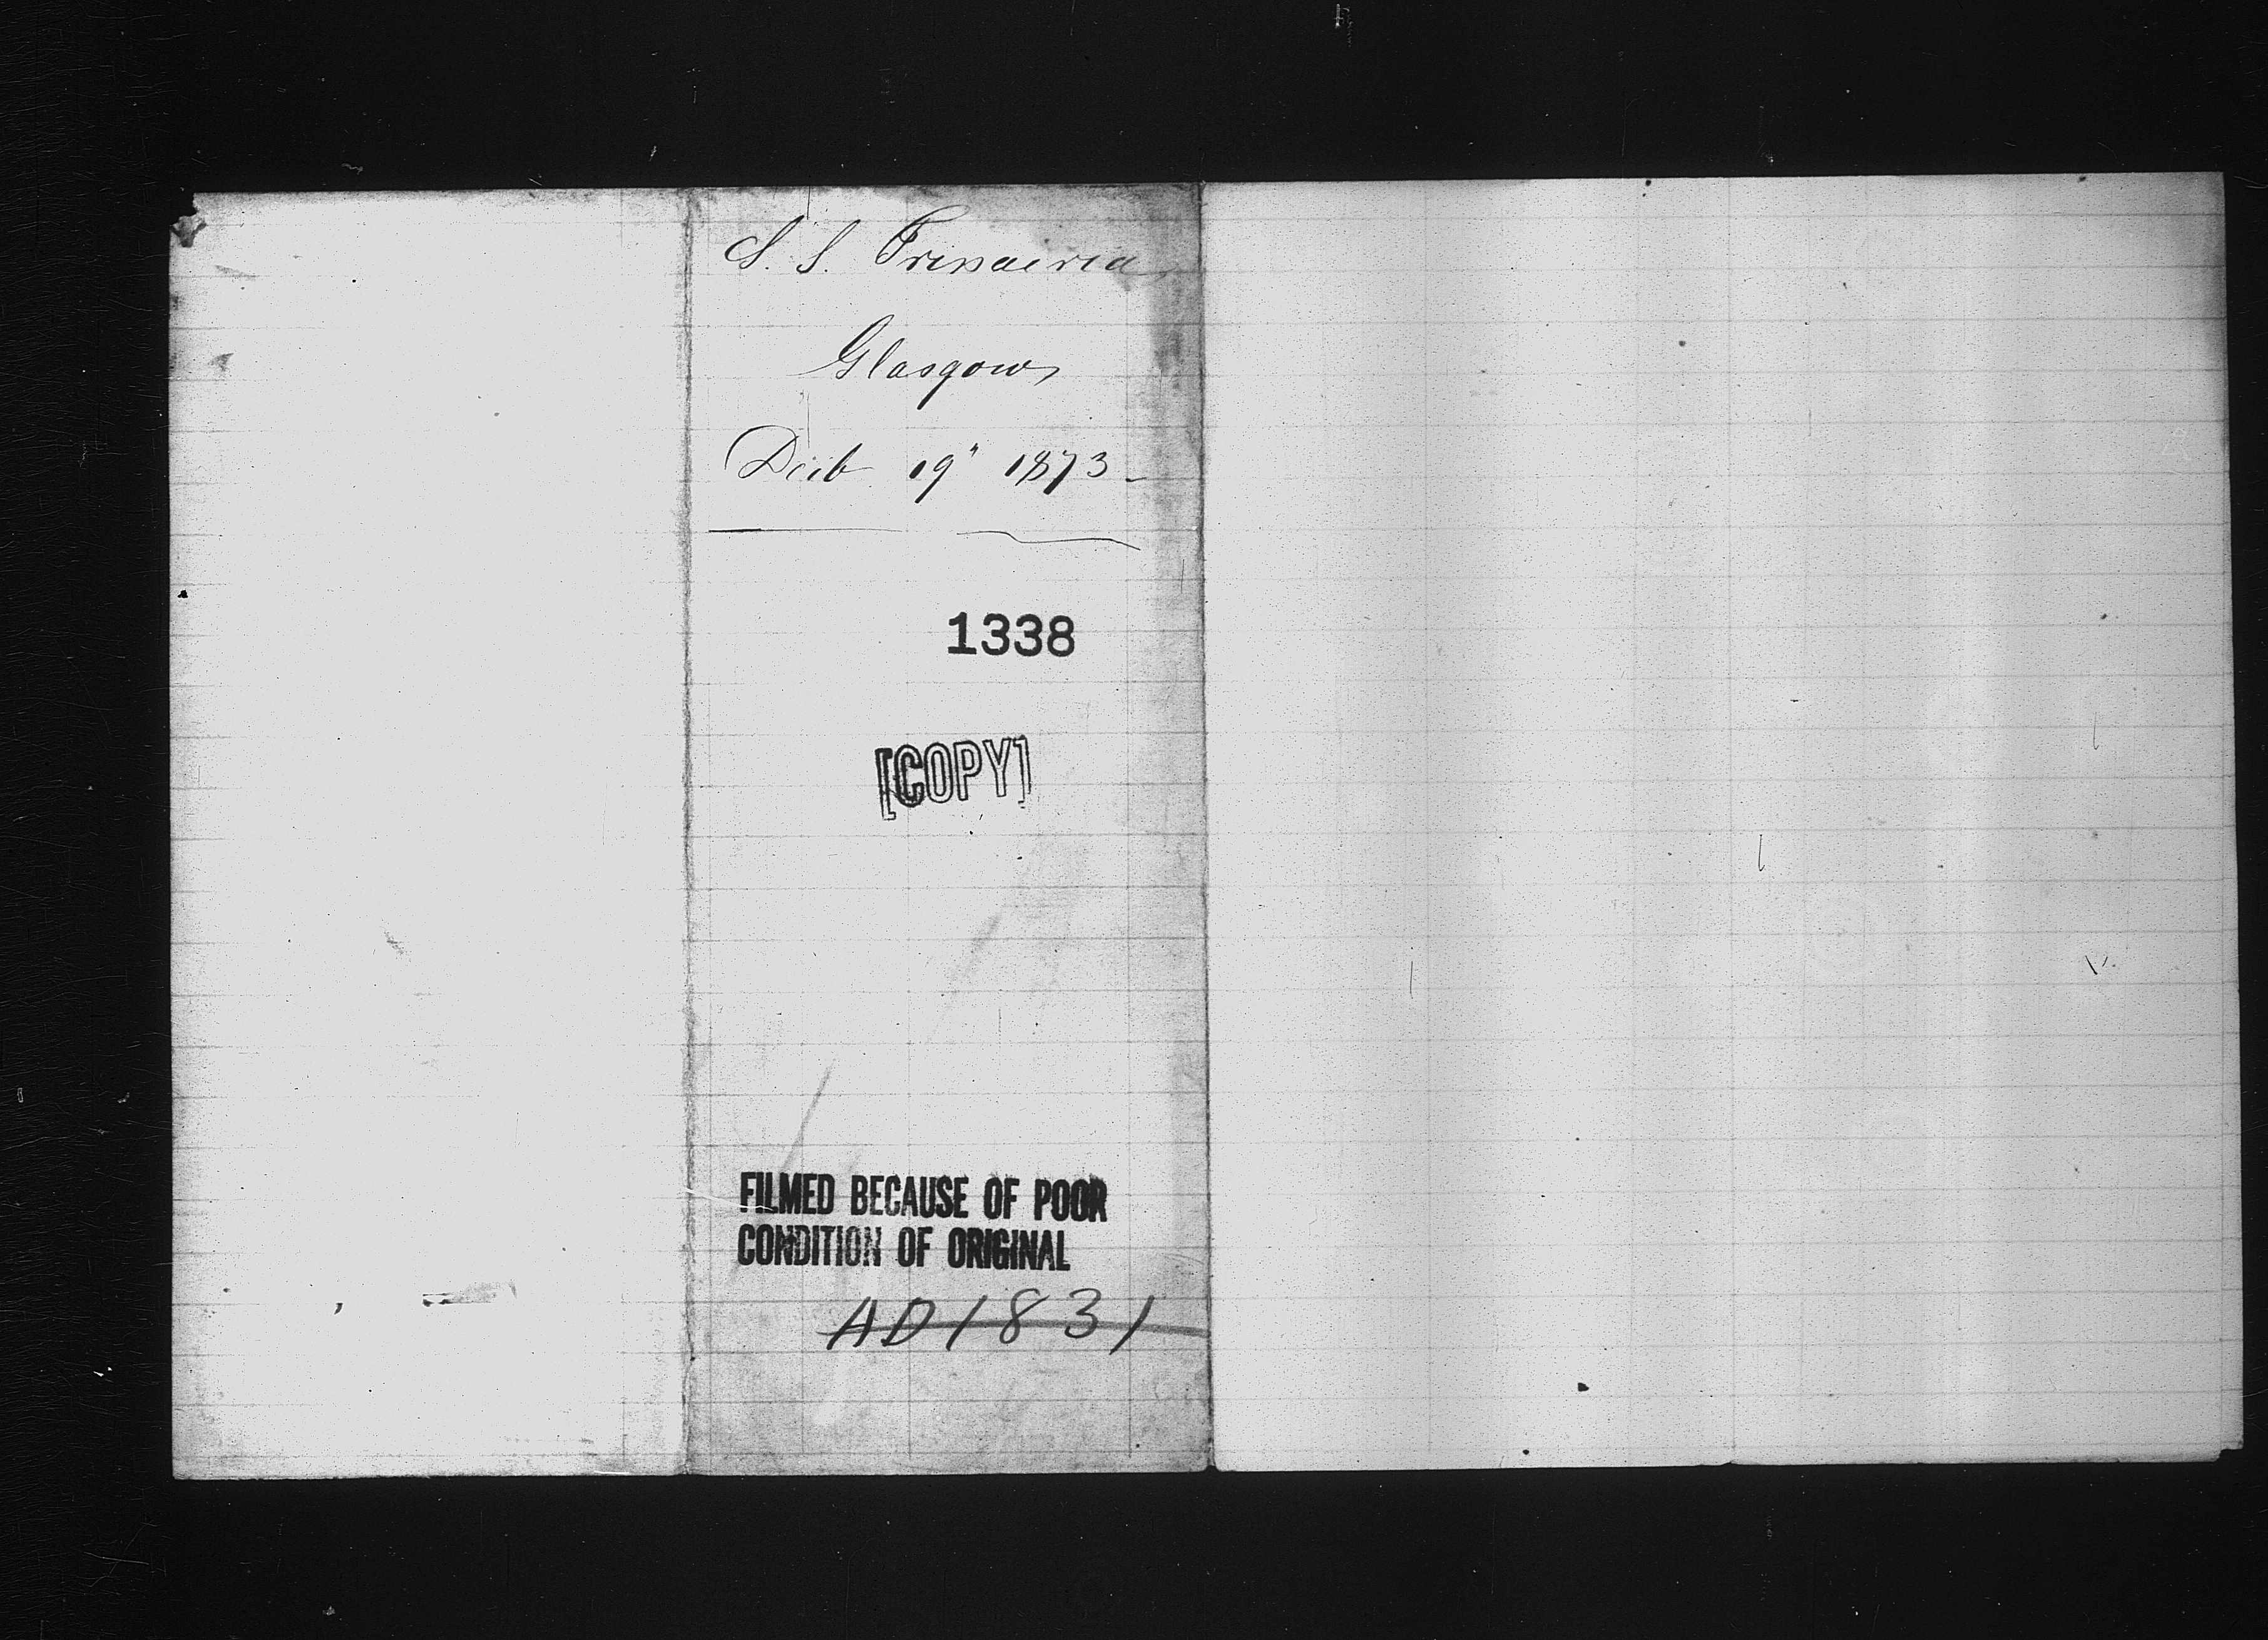 S. S. Trinacria
Glasgow
Decb 19" 1873 -
1338
[COPY]
FILMED BECAUSE OF POOR
CONDITION OF ORIGINAL
AD1831